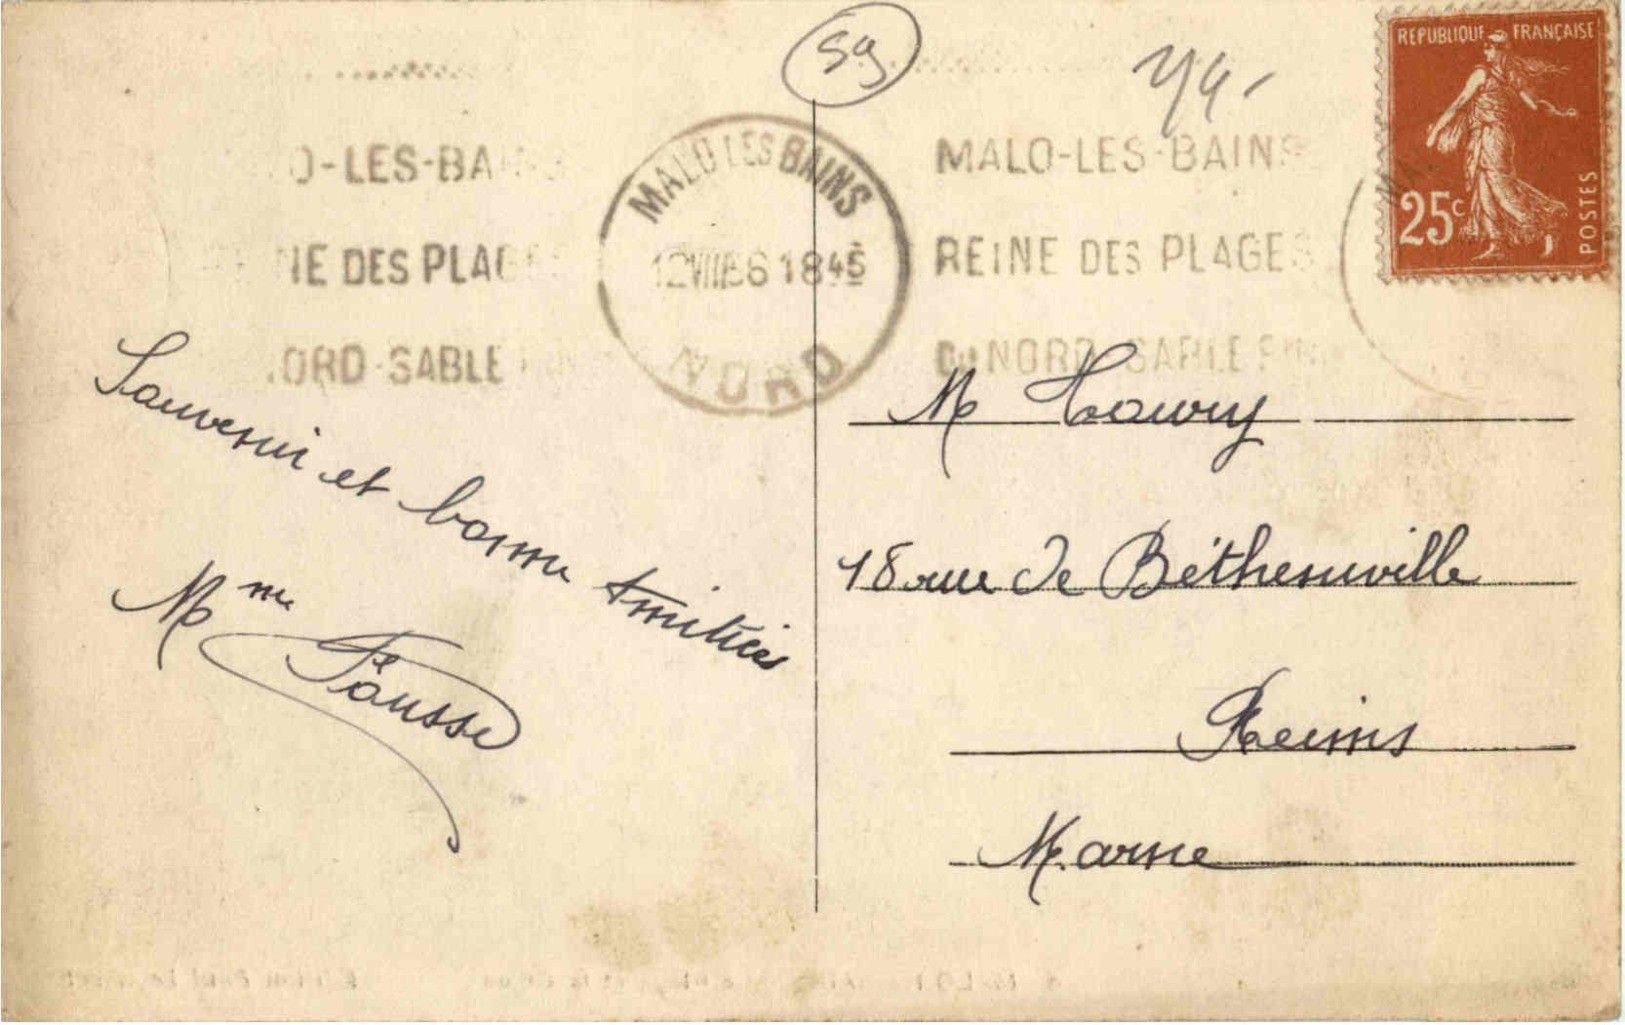 59
RÉPUBLIQUE FRANÇAISE
25c
POSTES
O-LES-BAINS
NE DES PLAGES
NORD-SABLE FIN
MALO LES BAINS
12 VIII 18 45
NORD
MALO-LES-BAINS
REINE DES PLAGES
DU NORD-SABLE FIN
Souvenir et bonne Amitiés
Mme Fausse
M Houry
18 rue de Bétheniville
Reims
Marne